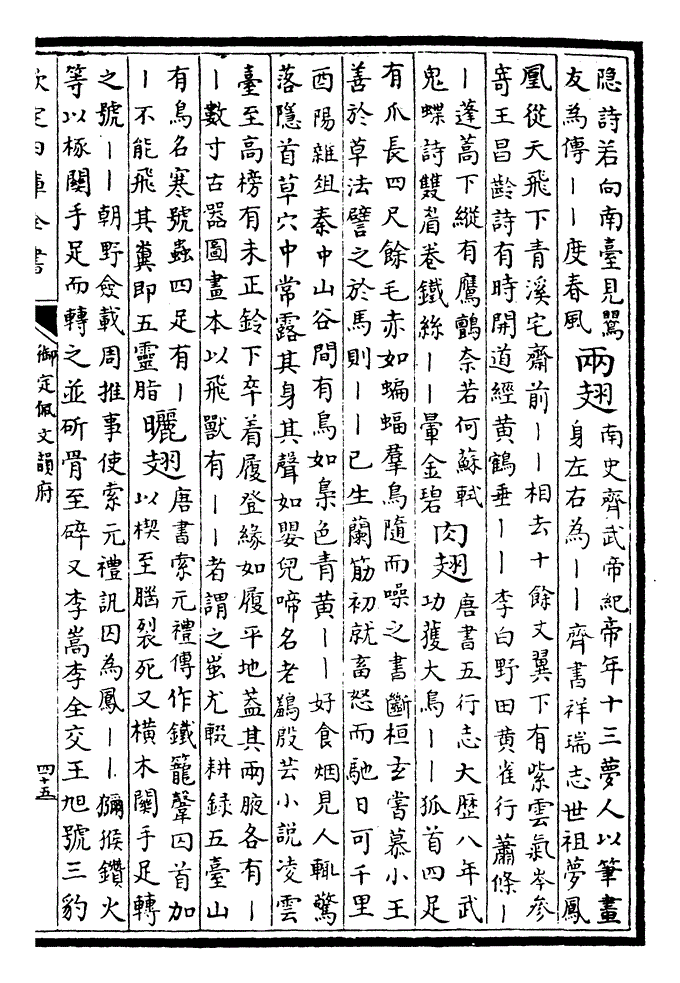 隐詩若向南臺見鸎
友為傳丨丨度春風
兩翅
南史齊武帝紀帝年十三夢人以筆畫
身左右為丨丨齊書祥瑞志世祖夢鳳
凰從天飛下青溪宅齋前丨丨相去十餘丈翼下有紫雲氣岑参
寄王昌齡詩有時開道經黄鶴垂丨丨李白野田黄雀行蕭條丨
丨蓬蒿下縱有鷹鸇奈若何蘇軾
鬼蝶詩雙眉卷鐵絲丨丨暈金碧
肉翅
唐書五行志大歴八年武
功獲大鳥丨丨狐首四足
有爪長四尺餘毛赤如蝙蝠羣鳥隨而噪之書斷桓玄嘗慕小王
善於草法譬之於馬則丨丨已生蘭筋初就畜怒而馳日可千里
酉陽雜俎秦中山谷間有鳥如梟色青黄丨丨好食烟見人輒驚
落隱首草穴中常露其身其聲如嬰兒啼名老殷芸小説凌雲
臺至高榜有未正鈴下卒着履登緣如履平地葢其兩腋各有丨
丨數寸古器圖畫本以飛獸有丨丨者謂之蚩尤輟耕録五臺山
有鳥名寒號蟲四足有丨
丨不能飛其糞即五靈脂
曬翅
唐書索元禮傳作鐵籠囚首加
以楔至腦裂死又横木關手足轉
之號丨丨朝野僉載周推事使索元禮訊囚為鳳丨丨獼猴鑽火
等以椓關手足而轉之並斫骨至碎又李嵩李全交王旭號三豹
欽定四庫全書
御定佩文韻府
四十五